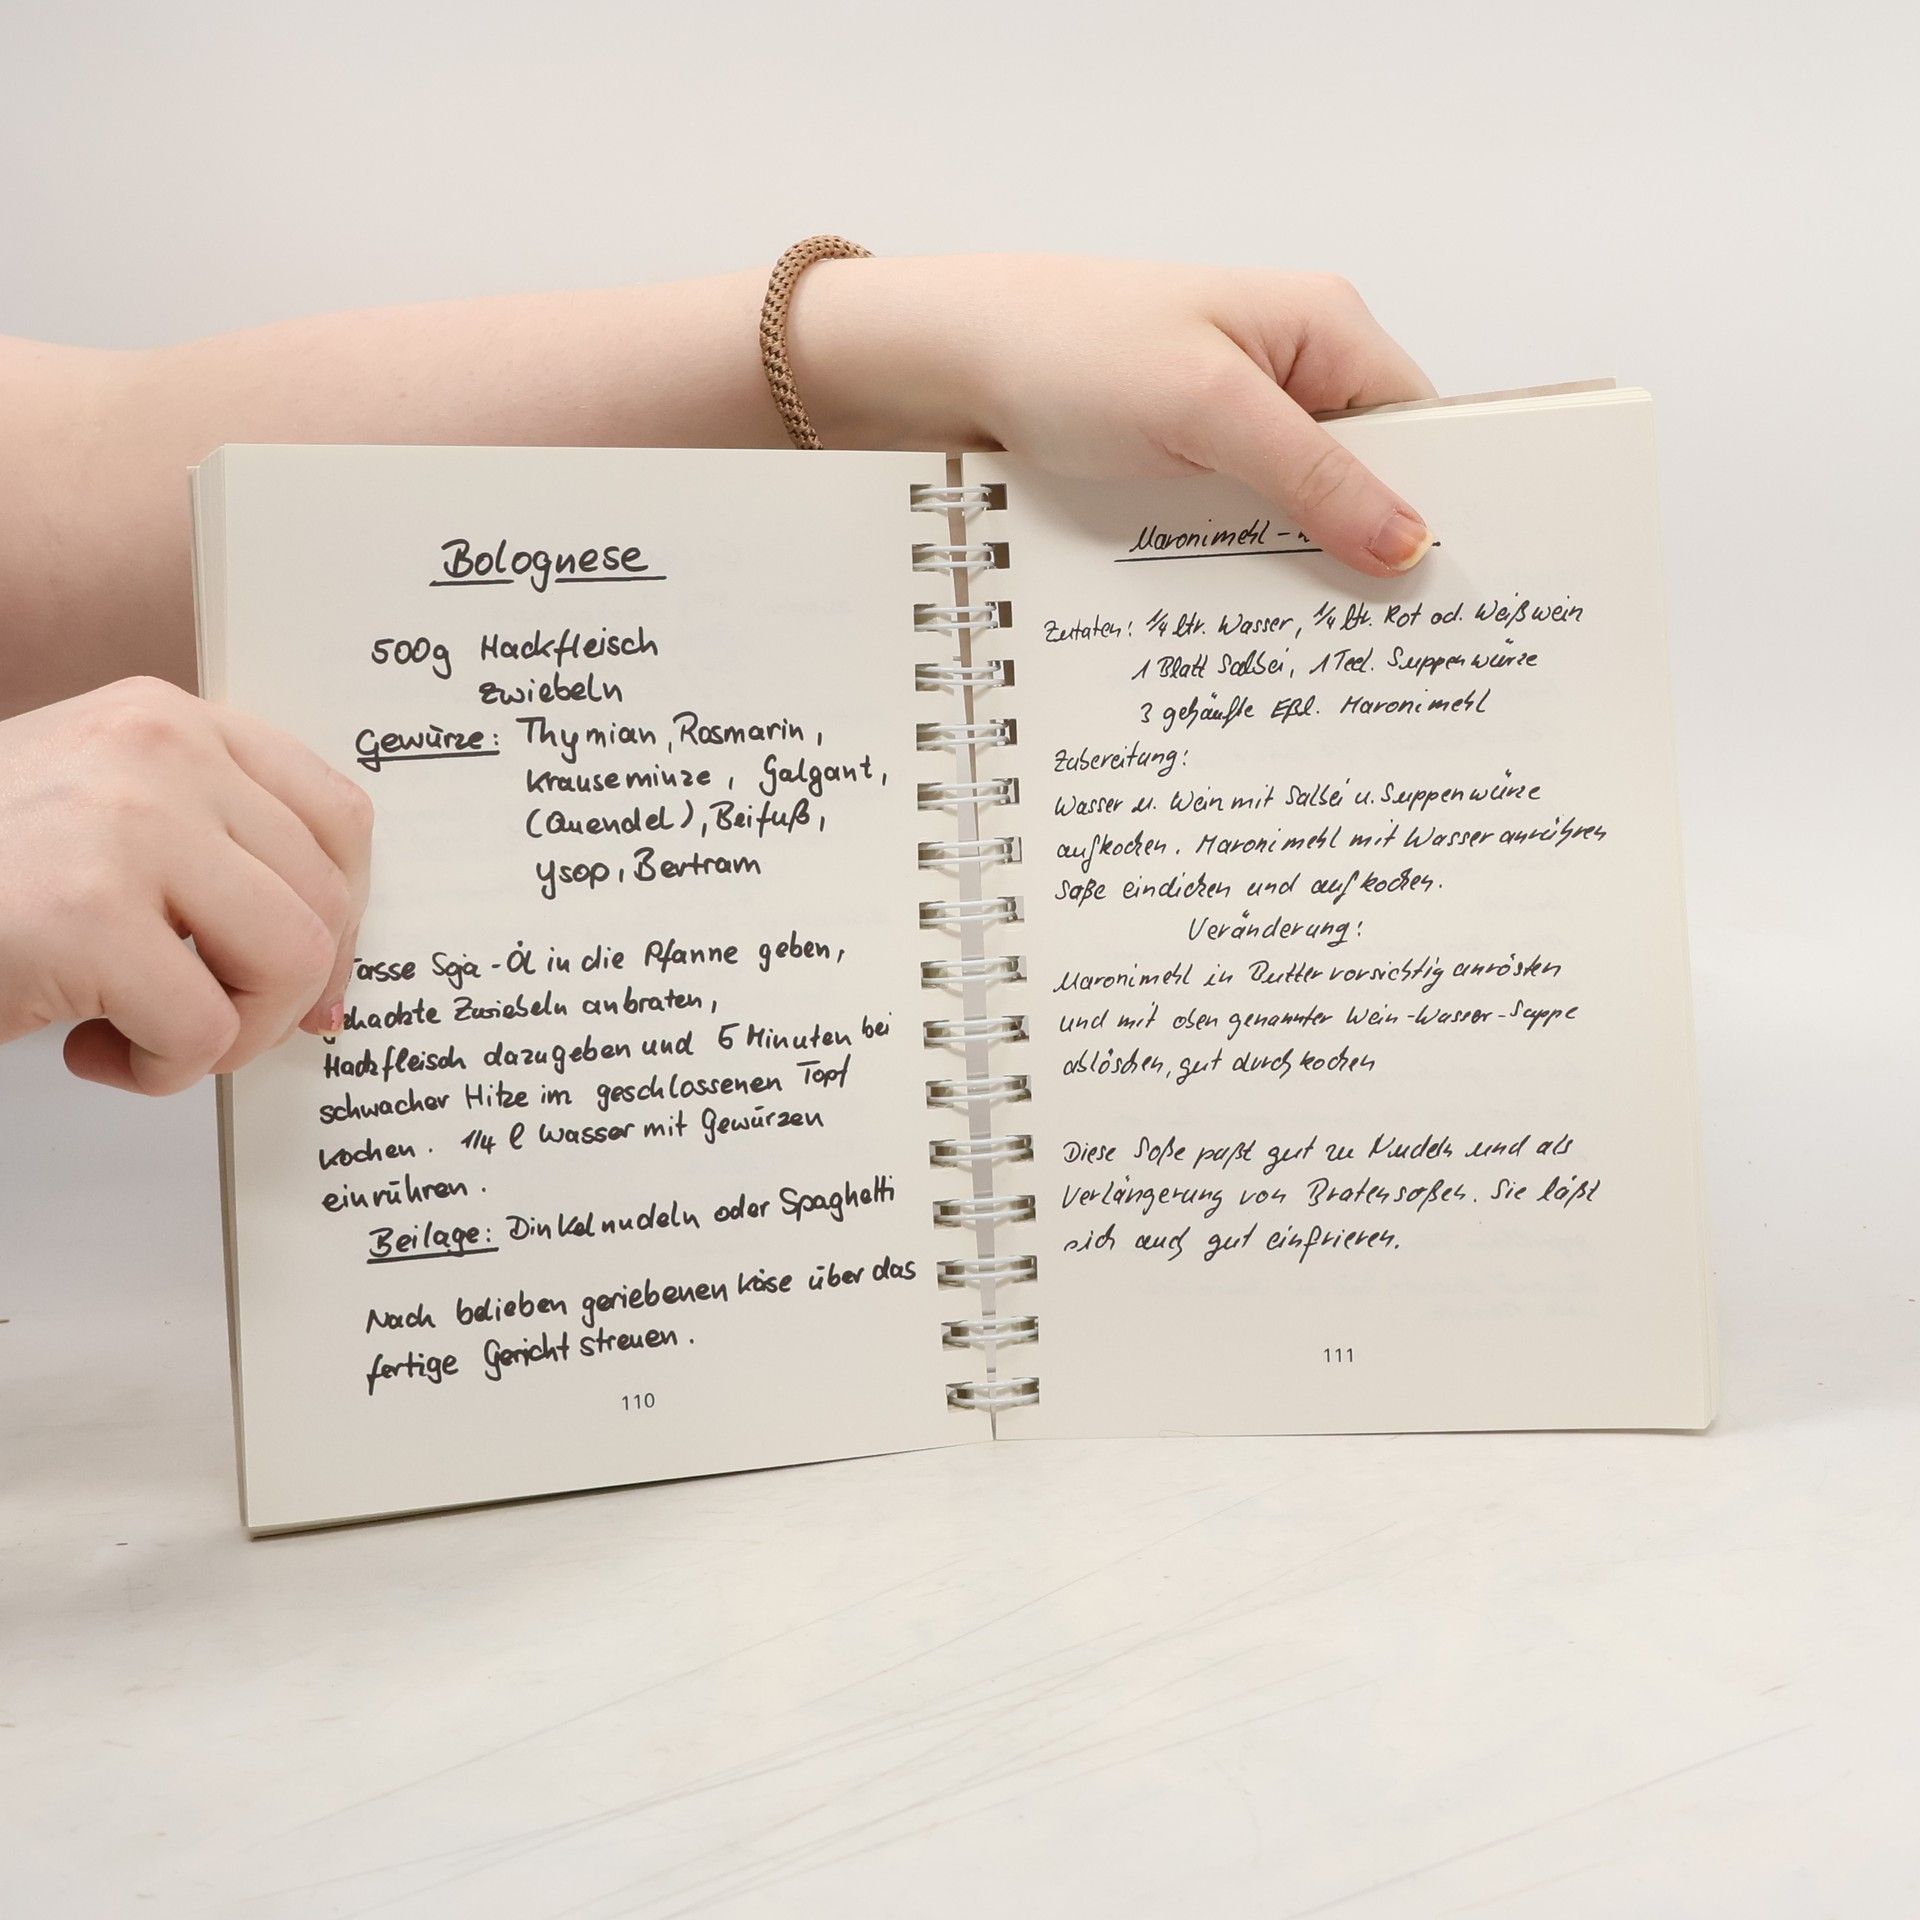 Bolognese
500g Hackfleisch
Zwiebeln
Gewürze: Thymian, Rosmarin,
Krauseminze, Galgant,
(Quendel), Beifuß,
Ysop, Bertram
Tasse Soja-Öl in die Pfanne geben,
gehackte Zwiebeln anbraten,
Hackfleisch dazugeben und 5 Minuten bei
schwacher Hitze im geschlossenen Topf
kochen. 1/4 l Wasser mit Gewürzen
einrühren.
Beilage: Dinkelnudeln oder Spaghetti
Nach belieben geriebenen Käse über das
fertige Gericht streuen.
110
Maronimehl-
Zutaten: 1/4 ltr. Wasser, 1/4 ltr. Rot od. Weißwein
1 Blatt Salbei, 1 Teel. Suppenwürze
3 gehäufte Eßl. Maronimehl
Zubereitung:
Wasser u. Wein mit Salbei u. Suppenwürze
aufkochen. Maronimehl mit Wasser anrühren
Soße eindicken und aufkochen.
Veränderung:
Maronimehl in Butter vorsichtig anrösten
und mit oben genannter Wein-Wasser-Suppe
ablöschen, gut durchkochen
Diese Soße paßt gut zu Nudeln und als
Verlängerung von Bratensoßen. Sie läßt
sich auch gut einfrieren.
111